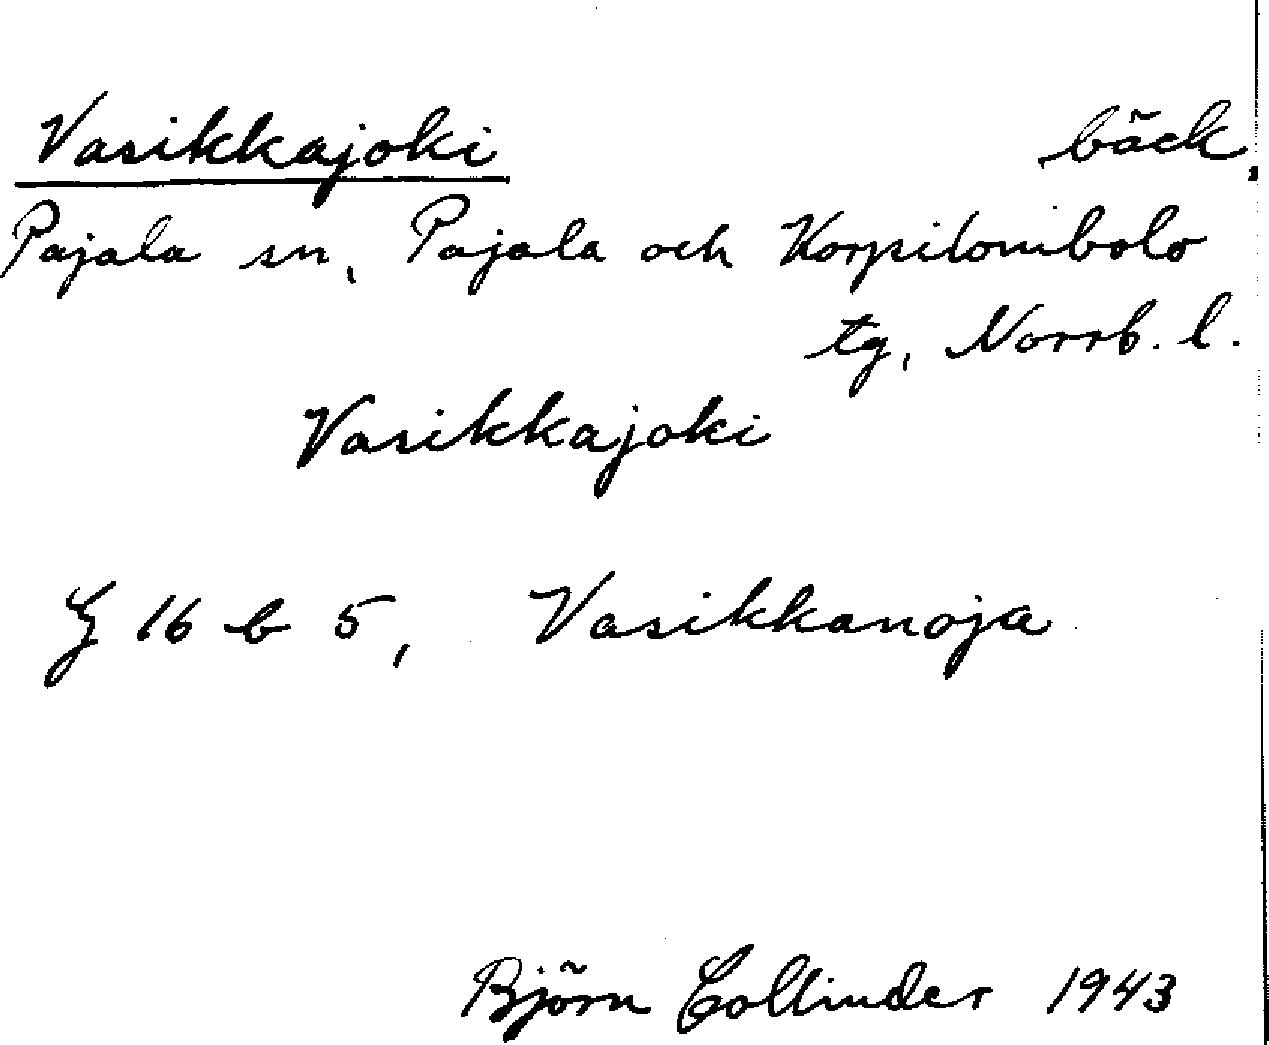 Vasikkajoki bäck,
Pajala sn, Pajala och Korpilombolo
tg, Norrb. l.
Vasikkajoki
16 b 5, Vasikkanoja
Björn Collinder 1943